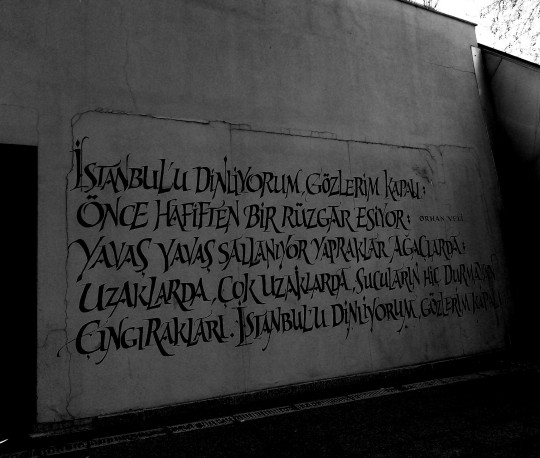 İSTANBUL'U DİNLİYORUM, GÖZLERİM KAPALI:
ÖNCE HAFİFTEN BİR RÜZGÂR ESİYOR: ORHAN VELİ
YAVAŞ YAVAŞ SALLANIYOR YAPRAKLAR AĞAÇLARDA:
UZAKLARDA, ÇOK UZAKLARDA, SUCULARIN HİÇ DURMAYAN
ÇINGIRAKLARI. İSTANBUL'U DİNLİYORUM, GÖZLERİM KAPALI